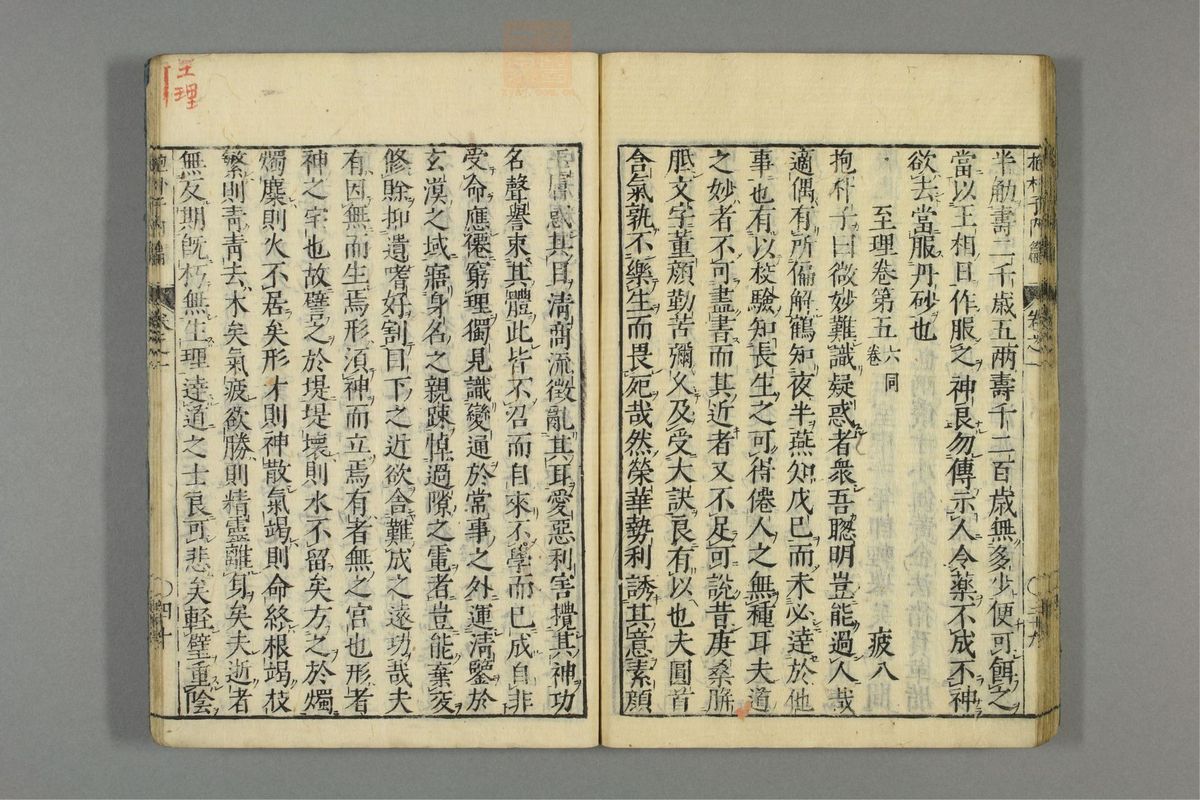 抱朴子内篇 卷之一 三十九
半觔壽二千歳五兩壽千二百歳無多少便可餌之
當以王相日作服之神良勿傳示人令藥不成不神
欲去當服丹砂也
至理卷第五 六同卷 疲八
抱朴子曰微妙難識疑惑者衆吾聦明豈能過人哉
適偶有所偏解鶴知夜半燕知戊巳而未必逹於他
事也有以校驗知長生之可得僊人之無種耳夫道
之妙者不可盡書而其近者又不足可説昔庚桑胼
胝文字董顔勤苦彌久及受大訣良有以也夫圓首
含氣孰不樂生而畏死哉然榮華勢利誘其意素顔
玉膚惑其目清商流徴亂其耳愛惡利害攪其神功
名聲譽束其體此皆不召而自來不學而已成自非
受命應僊窮理獨見識變通於常事之外運清鑒於
玄漠之域寤身名之親踈悼過隙之電者豈能棄交
修賖抑遺嗜好割目下之近欲舎難成之遠功哉夫
有因無而生焉形湏神而立焉有者無之宮也形者
神之宅也故譬之於堤堤壞則水不留矣方之於燭
燭糜則火不居矣形才則神散氣竭則命終根竭枝
繁則青青去木矣氣疲欲勝則精靈離身矣夫逝者
無反期旣朽無生理逹道之士良可悲矣軽璧重陰
抱朴子内篇 卷之一 四十
至理